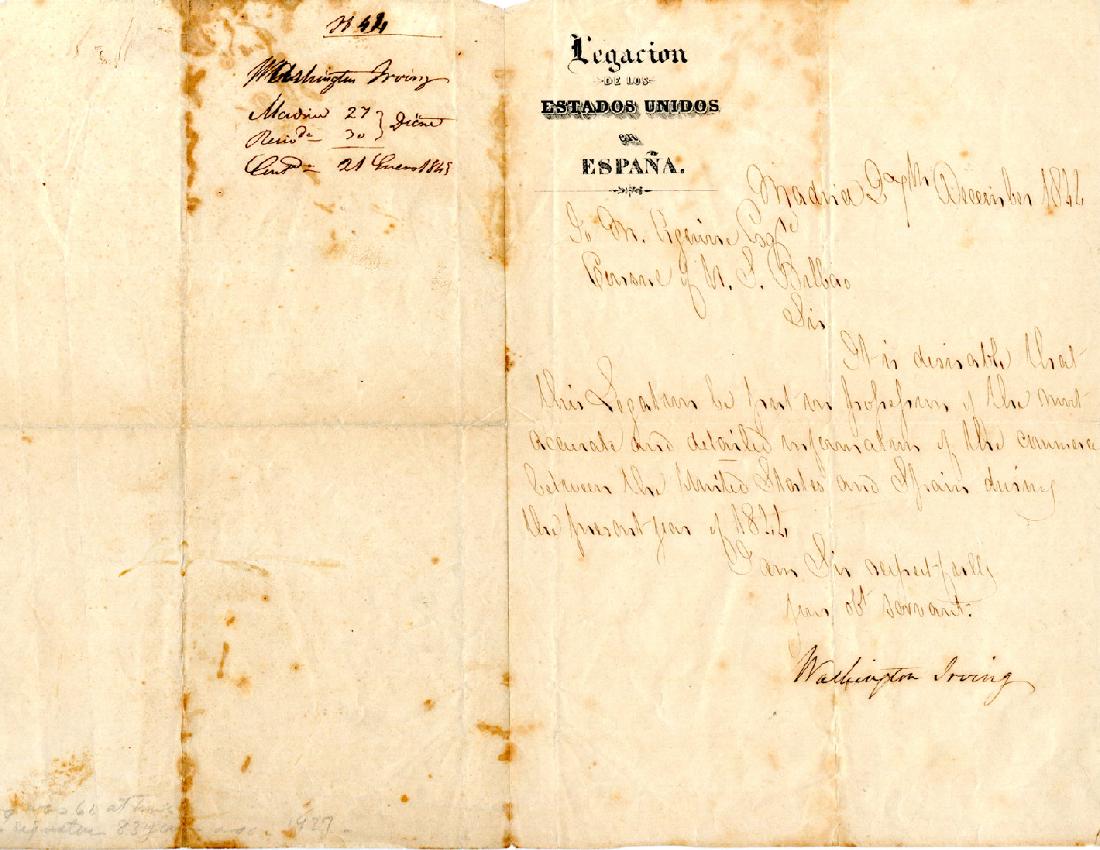 Nº 44
Washington Irving
Madrid 27
Recivda 30 } Dice
Contda 21 Enero 1845
Legacion
DE LOS
ESTADOS UNIDOS
EN
ESPAÑA.
Madrid 27th December 1844
To M. Aguirre Esqre
Consul of U. S. Bilbao
Sir
It is desirable that
this Legation be put in possession of the most
accurate and detailed information of the commerce
between the United States and Spain during
the present year of 1844
I am Sir respectfully
your obt servant.
Washington Irving
was 62 at time
83 years ago. 1927.